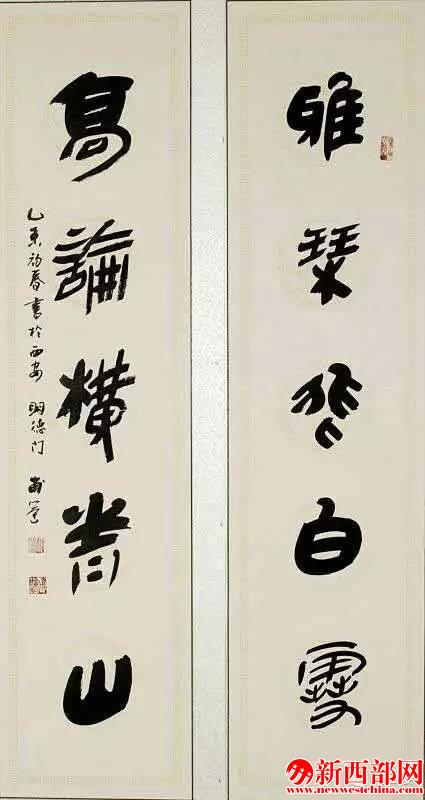 雅琹飛白雪
高論橫青山
乙初春書於西安明德门
新西部网
www.newwestchina.com